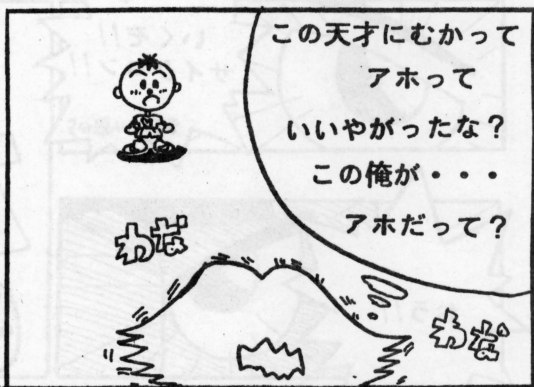 この天才にむかって
アホって
いいやがったな？
この俺が・・・
アホだって？
わな
わな